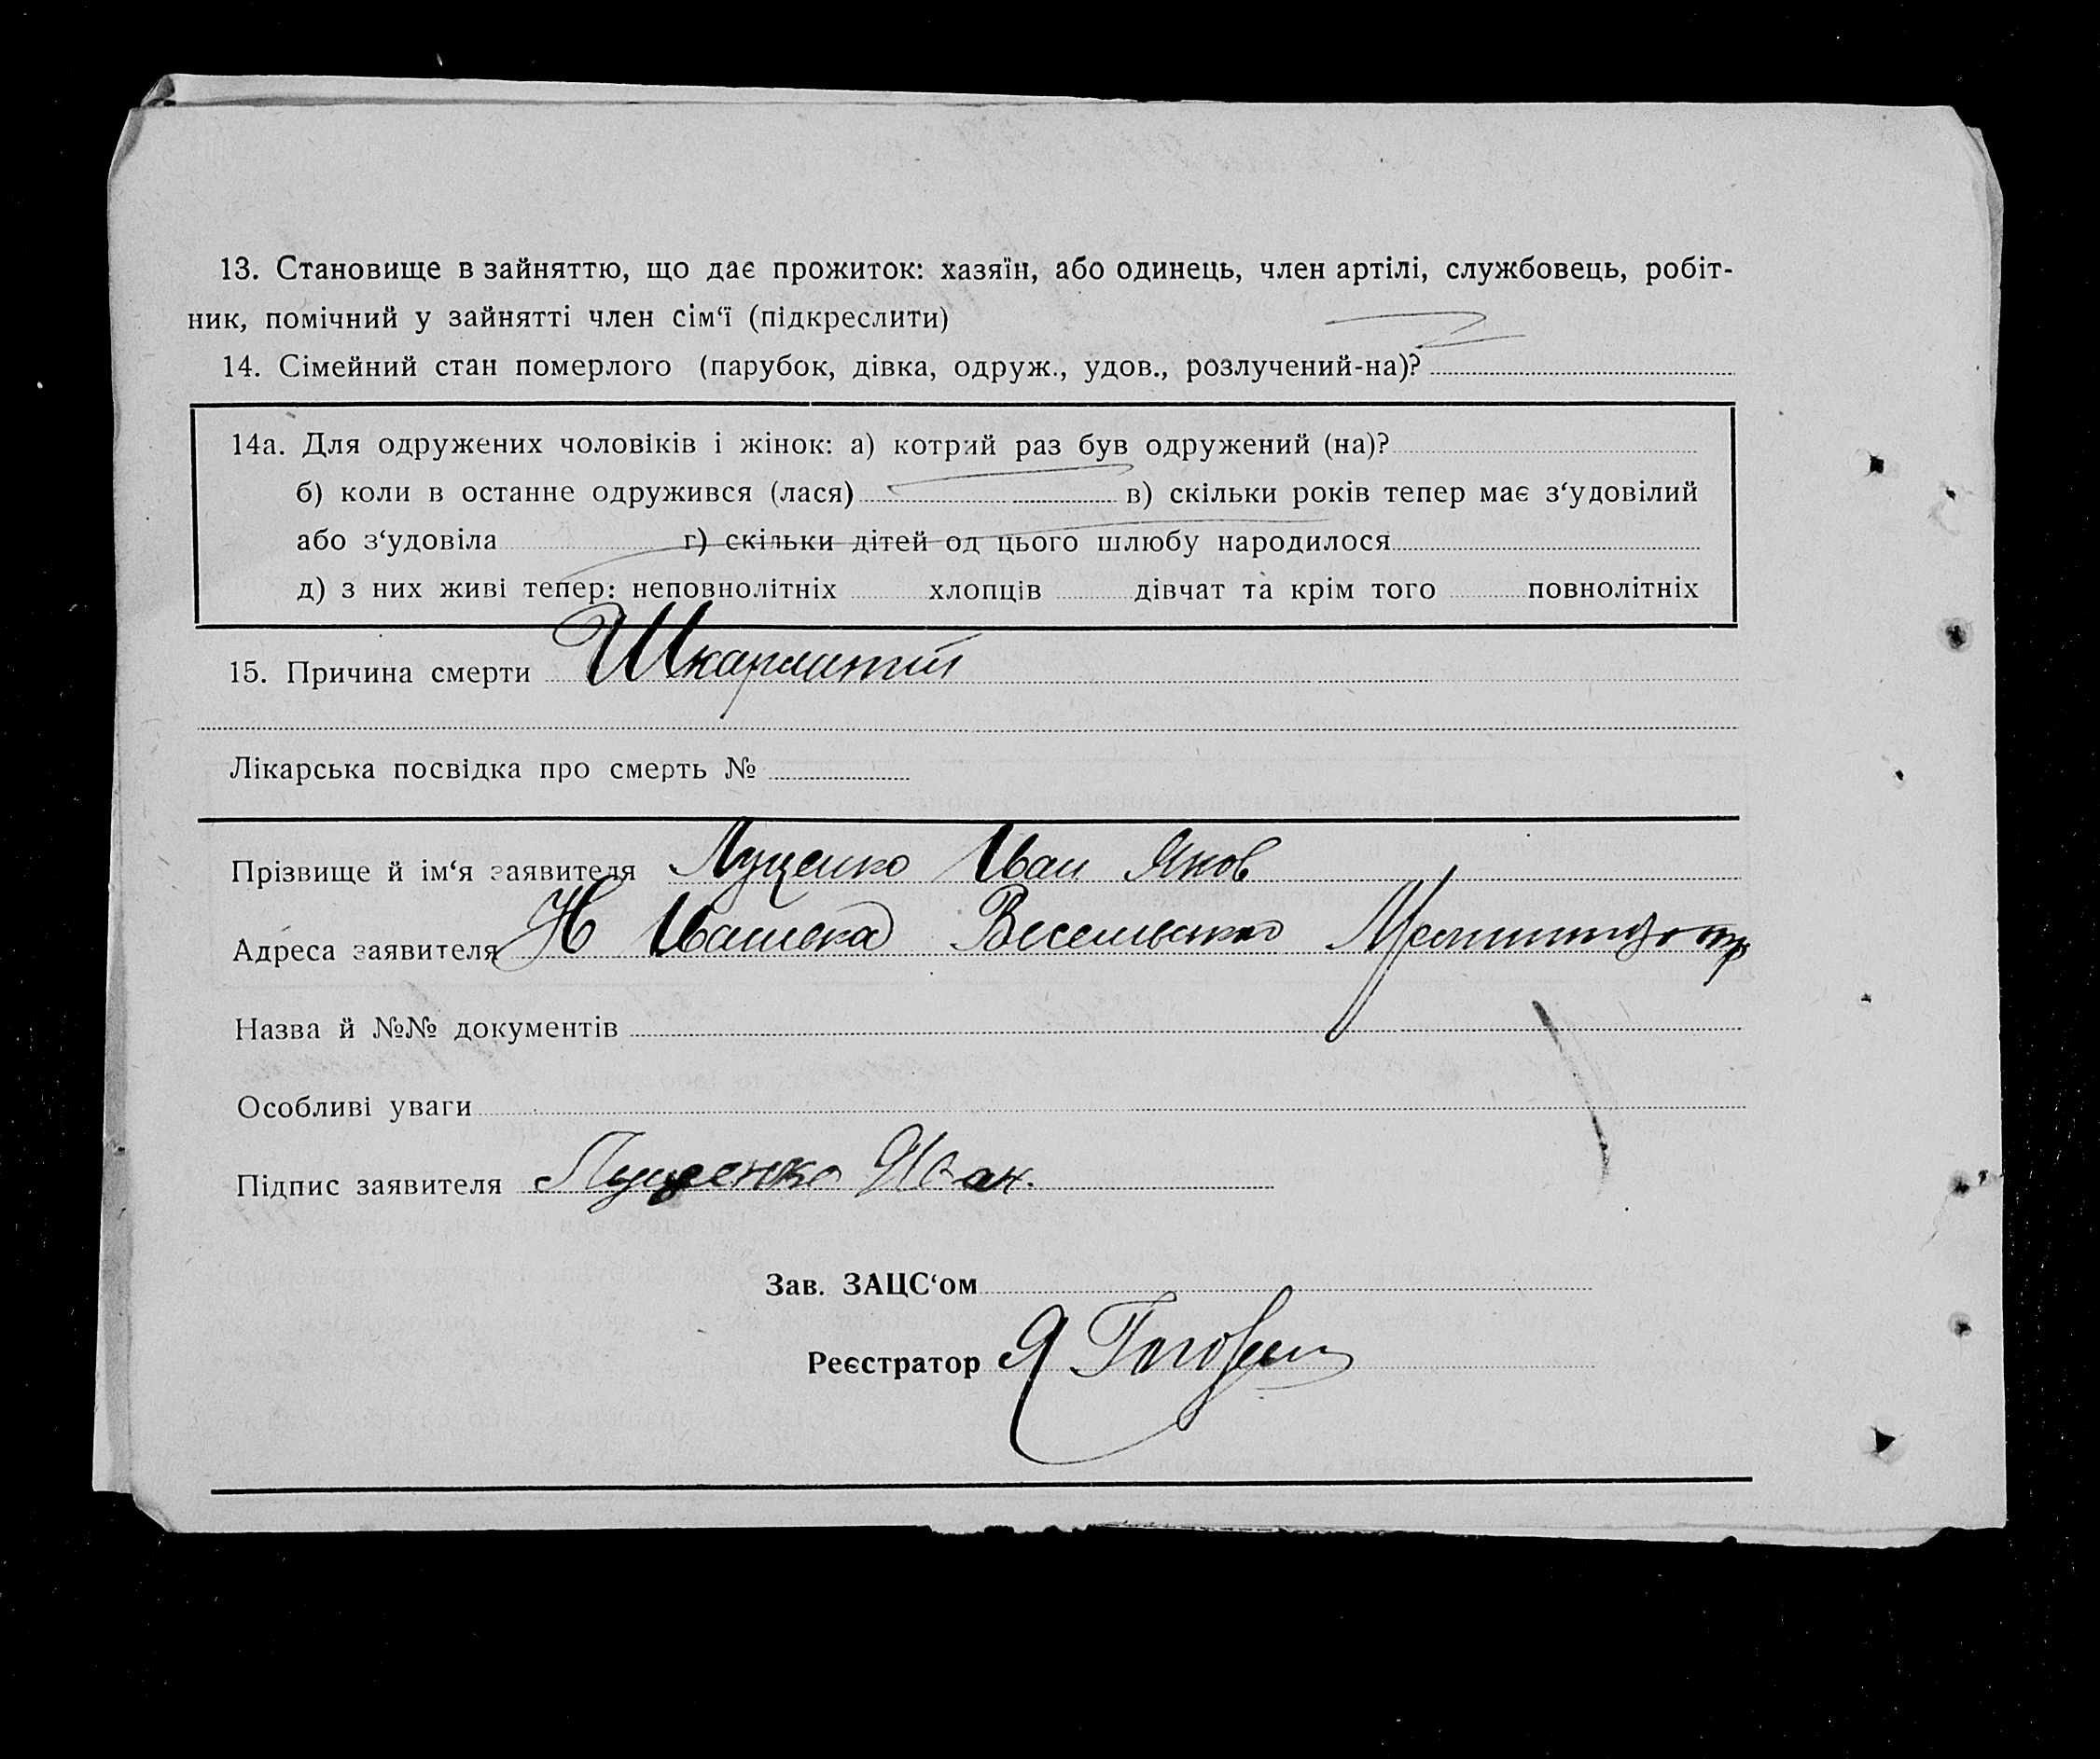 13. Становище в зайняттю, що дає прожиток: хазяїн, або одинець, член артілі, службовець, робіт-
ник, помічний у зайнятті член сім‘ї (підкреслити)
14. Сімейний стан померлого (парубок, дівка, одруж., удов., розлучений-на)?
14а. Для одружених чоловіків і жінок: а) котрий раз був одружений (на)?
б) коли в останне одружився (лася) в) скільки років тепер має з‘удовілий
або з‘удовіла г) скільки дітей од цього шлюбу народилося
д) з них живі тепер: неповнолітніх хлопців дівчат та крім того повнолітніх
15. Причина смерти Шкарлатин
Лікарська посвідка про смерть №
Прізвище й ім‘я заявителя Луценко Іван Яков
Адреса заявителя Н Ивашека Весельского
Назва й №№ документів
Особливі уваги
Підпис заявителя Луценко Иван.
Зав. ЗАЦС‘ом
Реєстратор Я